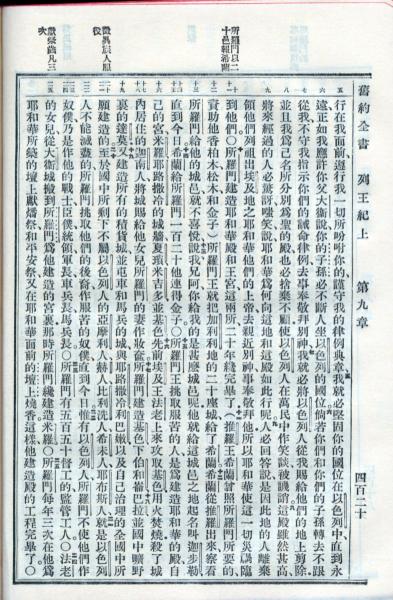 舊約全書 列王紀上 第九章 四百二十
所羅門以二
十邑報希蘭
徵異族人服
役
獻祭歲凡三
次
行在我面前遵行我一切所吩咐你的謹守我的律例典章我就必堅固你的國位在以色列中直到永
遠正如我應許你父大衛說你的子孫必不斷人坐以色列的國位倘若你們和你們的子孫轉去不跟
從我不守我指示你們的誡命律例去事奉敬拜別神我就必將以色列人從我賜給他們的地上剪除
並且我爲己名所分別爲聖的殿也必捨棄不顧使以色列人在萬民中作笑談被譏誚這殿雖然甚高
將來經過的人必驚訝嗤笑說耶和華爲何向這地和這殿如此行呢人必回答說是因此地的人離棄
領他們列祖出埃及地之耶和華他們的上帝去親近別神事奉敬拜他所以耶和華使這一切災禍臨
到他們○所羅門建造耶和華殿和王宮這兩所二十年纔完畢了（推羅王希蘭曾照所羅門所要的
資助他香柏木松木和金子）所羅門王就把加利利地的二十座城給了希蘭希蘭從推羅出來察看
所羅門給他的城邑就不喜悅說我兄阿你給我的是甚麼城邑呢他就給這城邑之地起名叫迦步勒
直到今日希蘭給所羅門一百二十他連得金子○所羅門王挑取服苦的人是爲建造耶和華的殿自
己的宮米羅耶路撒冷的城牆夏瑣米吉多並基色先前埃及王法老上來攻取基色用火焚燒殺了城
內居住的迦南人將城賜給他女兒所羅門的妻作妝奩所羅門建造基色下伯和崙巴拉並國中曠野
裏的達莫又建造所有的積貨城並屯車和馬兵的城與耶路撒冷利巴嫩以及自己治理的全國中所
願建造的至於國中所剩下不屬以色列人的亞摩利人赫人比利洗人希未人耶布斯人就是以色列
人不能滅盡的所羅門挑取他們的後裔作服苦的奴僕直到今日惟有以色列人所羅門不使他們作
奴僕乃是作他的戰士臣僕統領軍長車兵長馬兵長○所羅門有五百五十督工的監管工人○法老
的女兒從大衛城搬到所羅門爲他建造的宮裏那時所羅門纔建造米羅○所羅門每年三次在他爲
耶和華所築的壇上獻燔祭和平安祭又在耶和華面前的壇上燒香這樣他建造殿的工程完畢了○